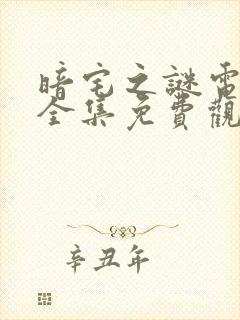 暗宅之謎電
全集免費觀
辛丑年